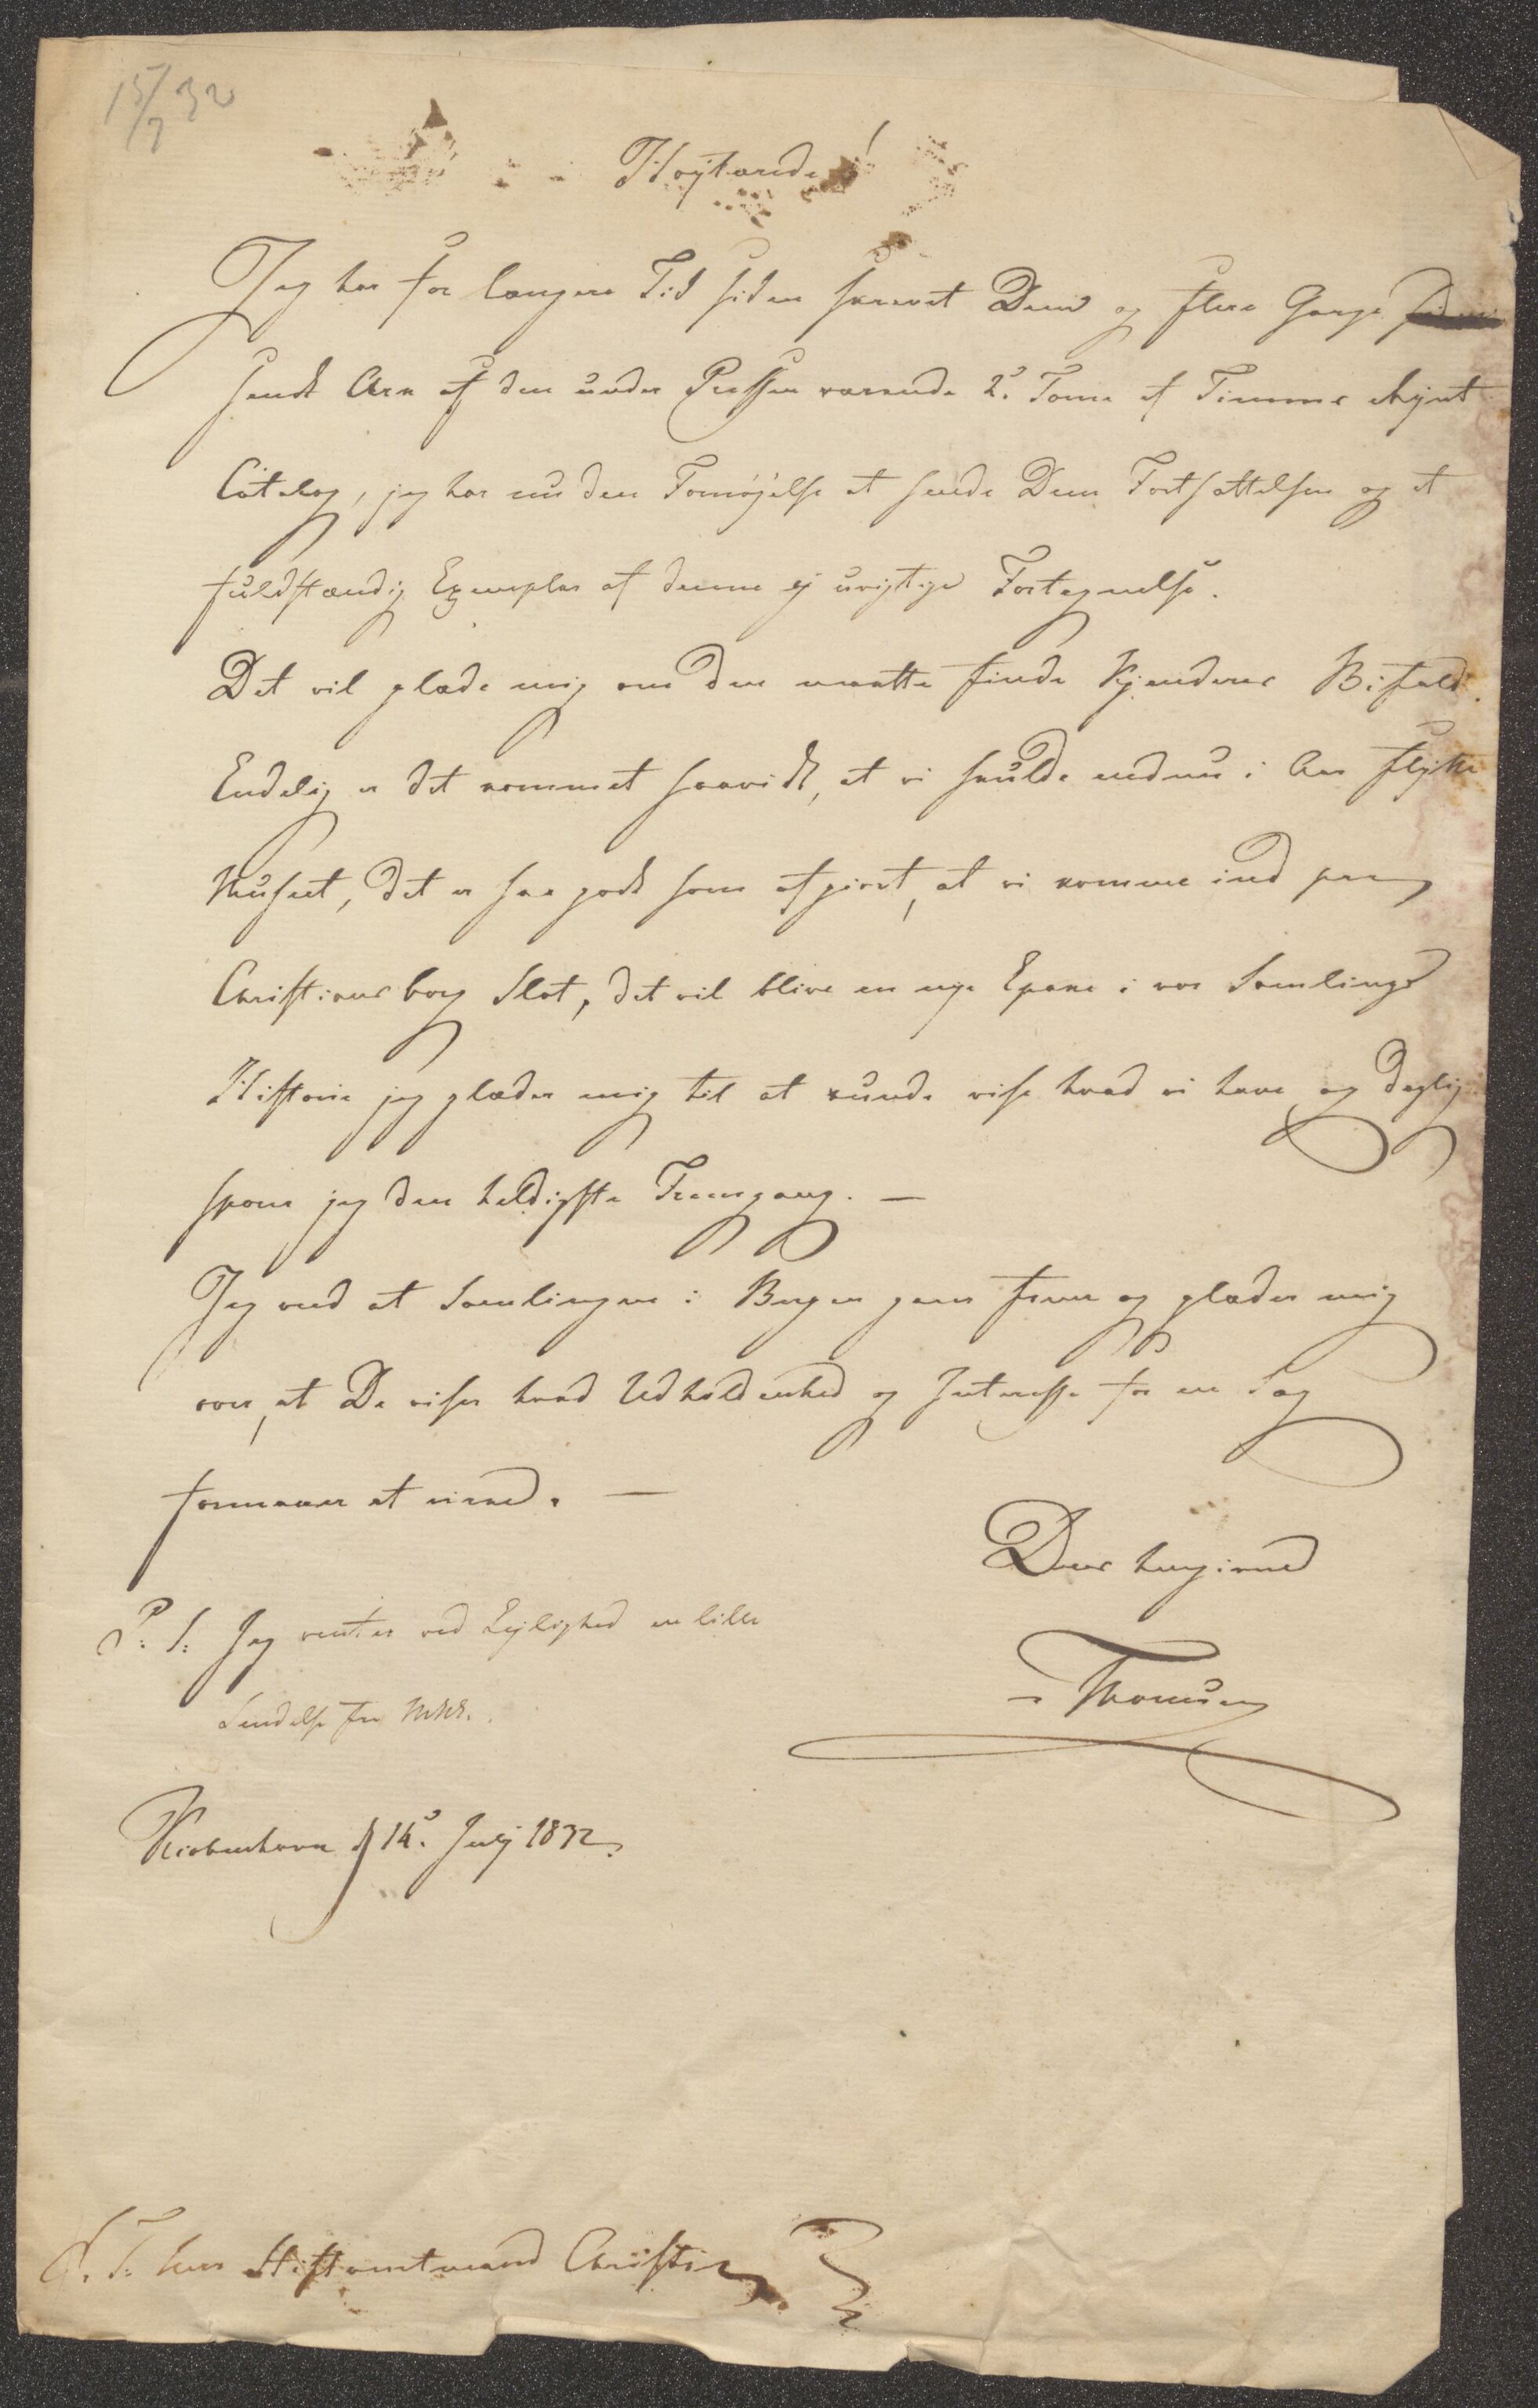 15/7 32
Høÿtærede!
Jeg har for længere Tid siden skrevet Dem og flere Gange
sendt Ark af den under Pressen værende 2. Tome af Timms Mÿnt
Catalog, jeg har nu den Fornøÿelse at sende Dem Fortsættelsen og et
fuldstændig Exemplar af denne ej uvigtige Fortegnelse.
Det vil glæde mig om den maatte finde Kjenderes Bifald.
Endelig er det kommet saavidt, at vi skulde endnu i Aar flÿtte
Museet, det er saa godt som afgiort, at vi komme ind paa
Christiansborg Slot, det vil blive en nye Epoke i vor Samlings
Historie jeg glæder mig til at kunde vise hvad vi have og daglig
spore jeg den heldigste Fremgang. —
Jeg veed at Samlingen i Bergen gaar frem og glæder mig
over, at De viser hvad Udholdenhed og Interesse for en Sag
formaaer at virke. —
Deres hengivne
Thomsen
P: S: Jeg venter ved Lejlighed en lille
Sendelse fra
Kiøbenhavn d 14. Julj 1832.
S. T. Herr Stiftamtmand Christie